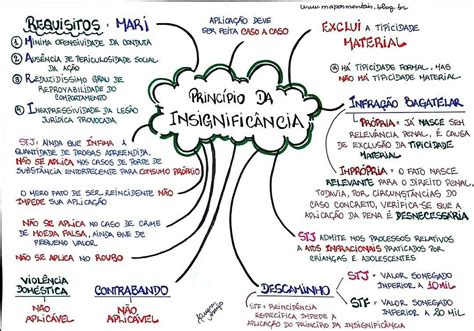 www.mapasmentais.blog.br
REQUISITOS: MARI
1 MÍNIMA OFENSIVIDADE DA CONDUTA
2 AUSÊNCIA DE PERICULOSIDADE SOCIAL
DA AÇÃO
3 REDUZIDÍSSIMO GRAU DE
REPROVABILIDADE DO
COMPORTAMENTO
4 INEXPRESSIVIDADE DA LESÃO
JURÍDICA PROVOCADA
APLICAÇÃO DEVE
SER FEITA CASO A CASO
EXCLUI A TIPICIDADE
MATERIAL
HÁ TIPICIDADE FORMAL, MAS
NÃO HÁ TIPICIDADE MATERIAL
PRINCÍPIO DA
INSIGNIFICÂNCIA
INFRAÇÃO BAGATELAR
PRÓPRIA: JÁ NASCE SEM
RELEVÂNCIA PENAL, É CAUSA
DE EXCLUSÃO DA TIPICIDADE
MATERIAL
IMPRÓPRIA: O FATO NASCE
RELEVANTE PARA O DIREITO PENAL,
TODAVIA, POR CIRCUNSTÂNCIAS DO
CASO CONCRETO, VERIFICA-SE QUE A
APLICAÇÃO DA PENA É DESNECESSÁRIA
STJ: AINDA QUE ÍNFIMA A
QUANTIDADE DE DROGAS APREENDIDA,
NÃO SE APLICA NOS CASOS DE PORTE DE
SUBSTÂNCIA ENTORPECENTE PARA CONSUMO PRÓPRIO
O MERO FATO DE SER REINCIDENTE NÃO
IMPEDE SUA APLICAÇÃO
NÃO SE APLICA NO CASO DE CRIME
DE MOEDA FALSA, AINDA QUE DE
PEQUENO VALOR
NÃO SE APLICA NO ROUBO
STJ ADMITE NOS PROCESSOS RELATIVOS
A ATOS INFRACIONAIS PRATICADOS POR
CRIANÇAS E ADOLESCENTES
VIOLÊNCIA
DOMÉSTICA
NÃO
APLICÁVEL
CONTRABANDO
NÃO
APLICÁVEL
DESCAMINHO
STJ - VALOR SONEGADO
INFERIOR A 10 MIL
STF - VALOR SONEGADO
INFERIOR A 20 MIL
STF = REINCIDÊNCIA
ESPECÍFICA IMPEDE A
APLICAÇÃO DO PRINCÍPIO DA INSIGNIFICÂNCIA